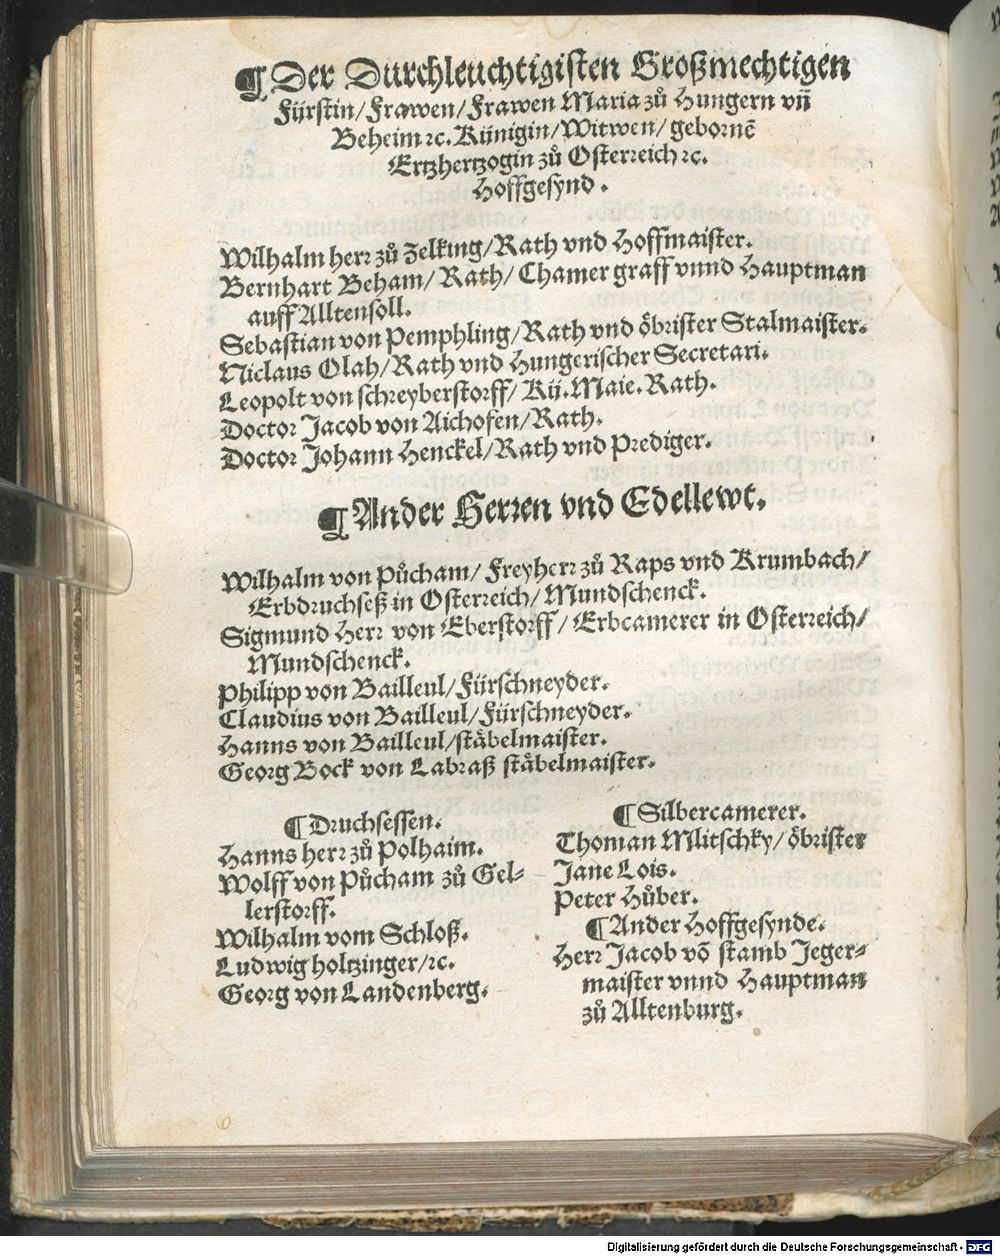 ¶Der Durchleuchtigisten Großmechtigen
Fürstin/Frawen/Frawen Maria zů Hungern vñ
Beheim ꝛc. Künigin/Witwen/gebornẽ
Ertzhertzogin zů Osterreich ꝛc.
Hoffgesynd.
Wilhalm herr zů Zelking/Rath vnd Hoffmaister.
Bernhart Beham/Rath/Chamergraff vnnd Hauptman
auff Alltensoll.
Sebastian von Pemphling/Rath vnd öbrister Stalmaister.
Niclaus Olah/Rath vnd Hungerischer Secretari.
Leopolt von schreyberstorff/Kü. Maie. Rath.
Doctor Jacob von Aichofen/Rath.
Doctor Johann Henckel/Rath vnd Prediger.
¶Ander Herren vnd Edellewt.
Wilhalm von Půcham/Freyherr zů Raps vnd Krumbach/
Erbdruchseß in Osterreich/Mundschenck.
Sigmund Herr von Eberstorff/Erbcamerer in Osterreich/
Mundschenck.
Philipp von Bailleul/Fürschneyder.
Claudius von Bailleul/Fürschneyder.
Hanns von Bailleul/stäbelmaister.
Georg Bock von Labraß stäbelmaister.
¶Druchsessen.
Hanns herr zů Polhaim.
Wolff von Půcham zů Gel-
lerstorff.
Wilhalm vom Schloß.
Ludwig holtzinger/ꝛc.
Georg von Landenberg.
¶Silbercamerer.
Thoman Mlitschky/öbrister
Jane Lois.
Peter Hůber.
¶Ander Hoffgesynde.
Herr Jacob võ stamb Jeger-
maister vnnd Hauptman
zů Alltenburg.
Digitalisierung gefördert durch die Deutsche Forschungsgemeinschaft - DFG